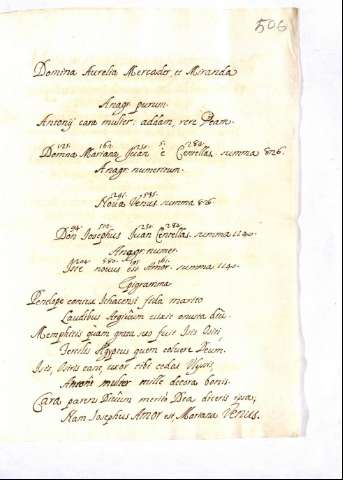 506
Domina Aurelia Mercader, et Miranda
Anagr. purum.
Antonij cara mulier: addam, rere Deam.
125. 162. 250. 5. 284.
Domna Mariana Juan è Centellas. summa 826.
Anagr. numericum.
241. 585.
Nova Venus summa 826
94. 512. 250. 284.
Don Josephus Juan Centellas. summa 1140.
Anagr. numer.
204. 880. 195. 161.
Iste novus est Amor. summa 1140.
Epigramma
Penelope coniux Ithacensi fida marito
Laudibus Argivûm extat onusta diu.
Memphitis quàm grata suo fuit Isis Osiri
Fertilis Ægyptus quem coluere Deum.
Isis, Osiris erat, uxor tibi cedat Ulyssis,
Antoni mulier mille decora bonis.
Cara parens Divûm meritò Dea diceris ipsa;
Nam Josephus Amor est, Mariana Venus.